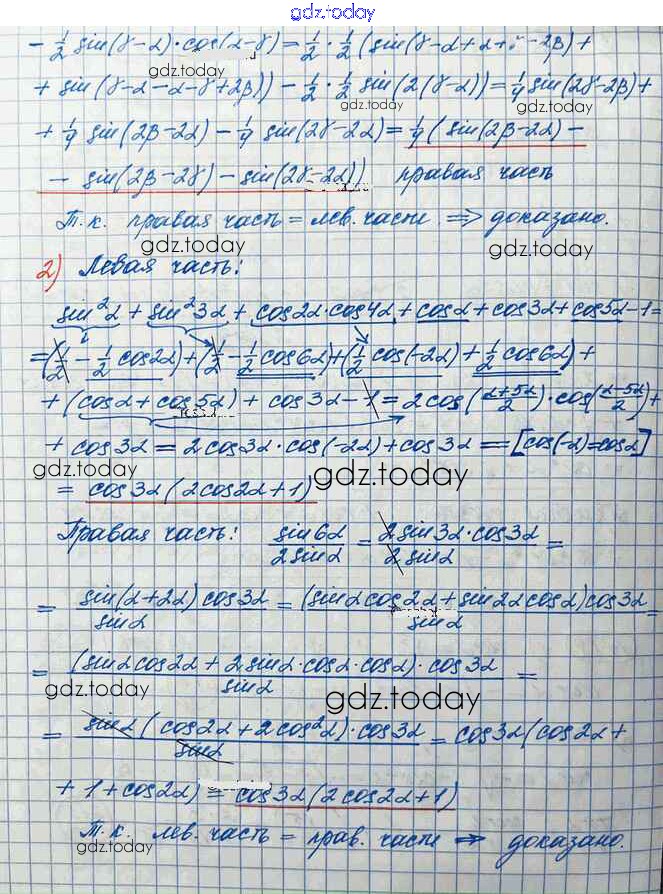 gdz.today
- 1/2 sin(γ-α)·cos(α-γ) = 1/2 · 1/2 (sin(γ-α+α+γ-2β)+
gdz.today
+ sin(γ-α-α-γ+2β)) - 1/2 · 1/2 sin(2(γ-α)) = 1/4 sin(2γ-2β)+
gdz.today
+ 1/4 sin(2β-2α) - 1/4 sin(2γ-2α) = 1/4 (sin(2β-2α) -
- sin(2β-2γ) - sin(2γ-2α)) правая часть
Т.к. правая часть = лев. части ⇒ доказано.
gdz.today
2) Левая часть:
gdz.today
sin²α + sin²3α + cos2α·cos4α + cosα + cos3α + cos5α - 1 =
= (1/2 - 1/2 cos2α) + (1/2 - 1/2 cos6α) + (1/2 cos(-2α) + 1/2 cos6α) +
+ (cosα + cos5α) + cos3α - 1 = 2cos((α+5α)/2)·cos((α-5α)/2) +
+ cos3α = 2cos3α·cos(-2α) + cos3α == [cos(-α)=cosα]
gdz.today gdz.today
= cos3α(2cos2α+1)
Правая часть: sin6α/2sinα = 2sin3α·cos3α/2sinα =
= sin(α+2α)cos3α/sinα = (sinαcos2α+sin2αcosα)cos3α/sinα =
= (sinαcos2α + 2sinα·cosα·cosα)·cos3α/sinα =
gdz.today gdz.today
= sinα(cos2α+2cos²α)·cos3α/sinα = cos3α(cos2α +
+ 1 + cos2α) = cos3α(2cos2α+1)
Т.к. лев. часть = прав. части ⇒ доказано.
gdz.today gdz.today